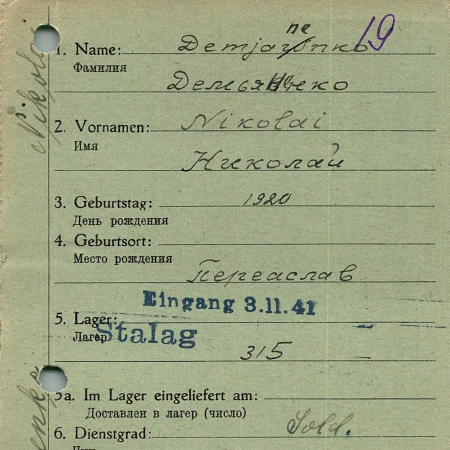 19
1. Name: Demjanenko
Фамилия
Демьяненко
2. Vornamen: Nikolai
Имя
Николай
3. Geburtstag: 1920
День рождения
4. Geburtsort:
Место рождения
Переаслав
Eingang 3.11.41
5. Lager: Stalag
Лагер:
315
5a. Im Lager eingeliefert am:
Доставлен в лагер (число)
6. Dienstgrad: Sold.
Nikolai